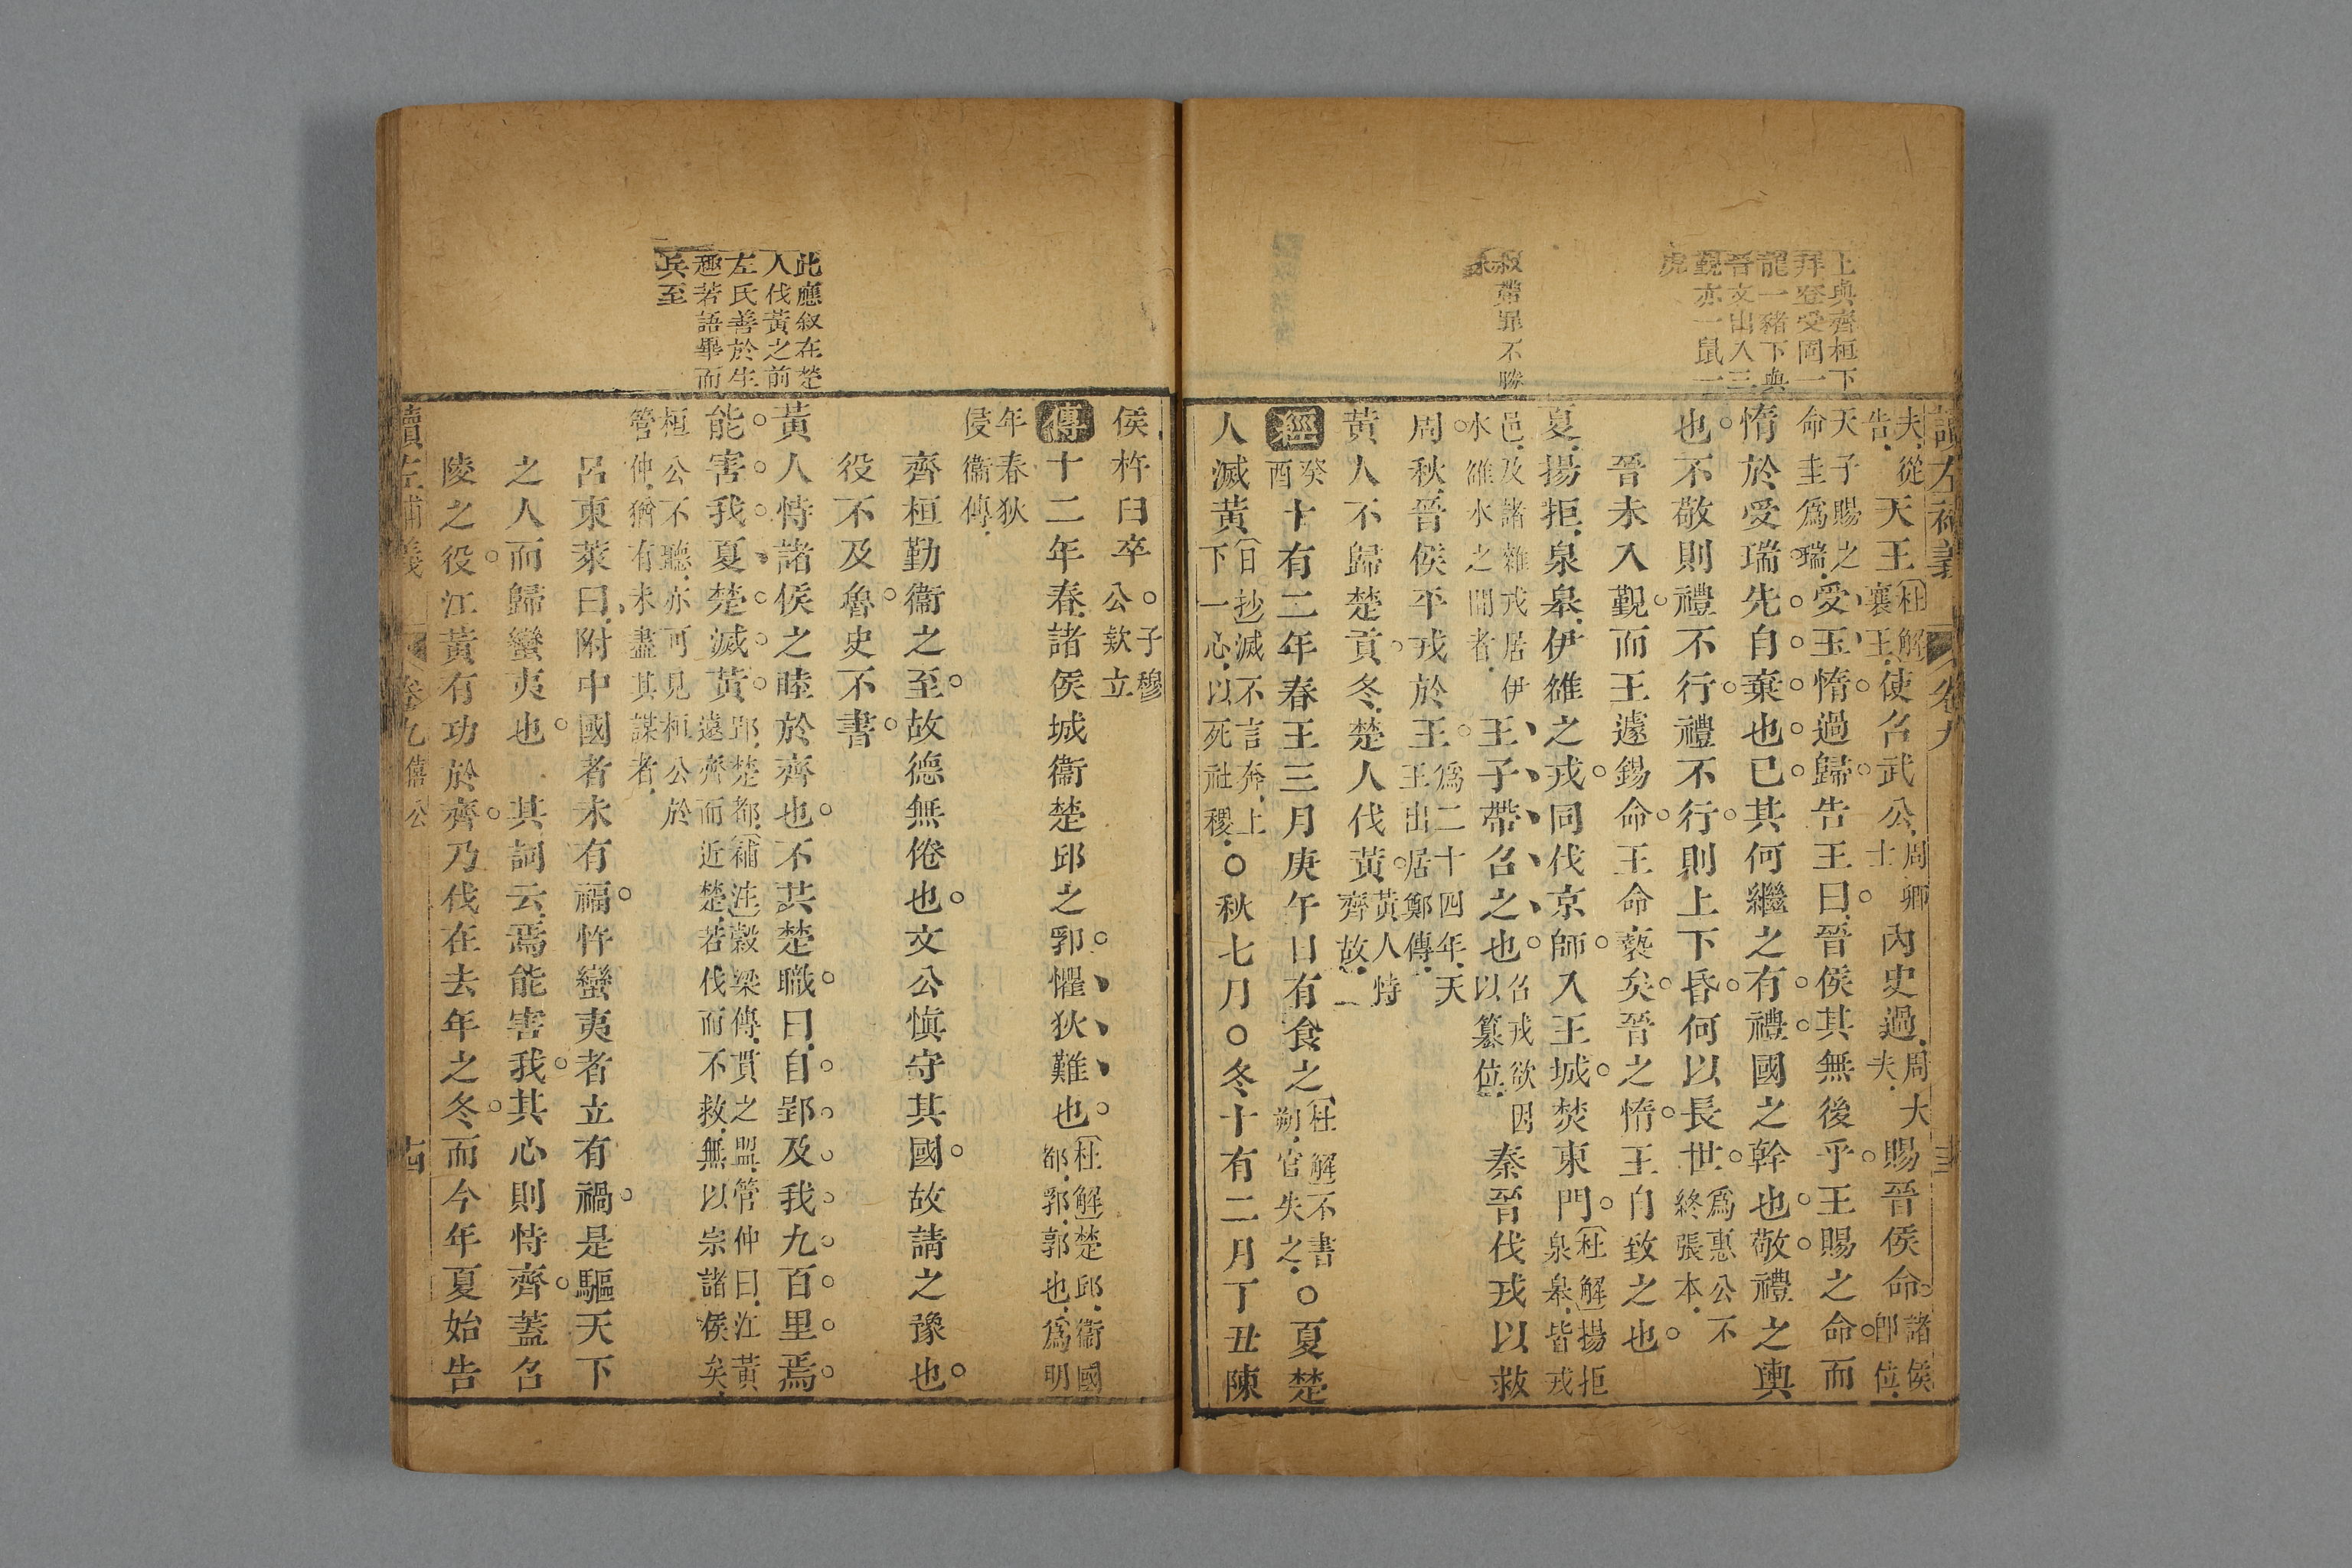 上與齊桓下
拜登受岡一
龍一豬下與
晉文出入三
覲亦一鼠一
虎
叙帶罪不勝
誅
讀左補義 卷九
夫從告 天王 杜解襄王 使召武公 周卿士 內史過 周大夫 賜晉侯命 諸侯即位
天子賜之命圭爲瑞 受玉惰過歸告王曰晉侯其無後乎王賜之命而
惰於受瑞先自棄也已其何繼之有禮國之幹也敬禮之輿
也不敬則禮不行禮不行則上下昏何以長世 爲惠公不終張本
晉未入覲而王遽錫命王命褻矣晉之惰王自致之也
夏揚拒泉皋伊雒之戎同伐京師入王城焚東門 杜解揚拒泉皋皆戎
邑及諸雜戎居伊水雒水之間者 王子帶召之也 召戎欲因以篡位 秦晉伐戎以救
周秋晉侯平戎於王 爲二十四年天王出居鄭傳
黃人不歸楚貢冬楚人伐黃 黃人恃齊故
經 癸酉 十有二年春王三月庚午日有食之 杜解不書朔官失之 ○夏楚
人滅黃 日抄滅不言奔上下一心以死社稷 ○秋七月○冬十有二月丁丑陳
此應叙在楚
人伐黃之前
左氏善於生
趣若語畢而
兵至
侯杵臼卒 公○子穆款立
傳 十二年春諸侯城衞楚邱之郛懼狄難也 杜解楚邱衞國都郛郭也爲明
年春狄侵衞傳
齊桓勤衞之至故德無倦也文公慎守其國故請之豫也
役不及魯史不書
黃人恃諸侯之睦於齊也不共楚職曰自郢及我九百里焉
能害我夏楚滅黃 郢楚都補注穀梁傳貫之盟管仲曰江黃遠齊而近楚若伐而不救無以宗諸侯矣
桓公不聽亦可見桓公於管仲猶有未盡其謀者
呂東萊曰附中國者未有福忤蠻夷者立有禍是驅天下
之人而歸蠻夷也 其詞云焉能害我其心則恃齊蓋召
陵之役江黃有功於齊乃伐在去年之冬而今年夏始告
讀左補義 卷九僖公 古